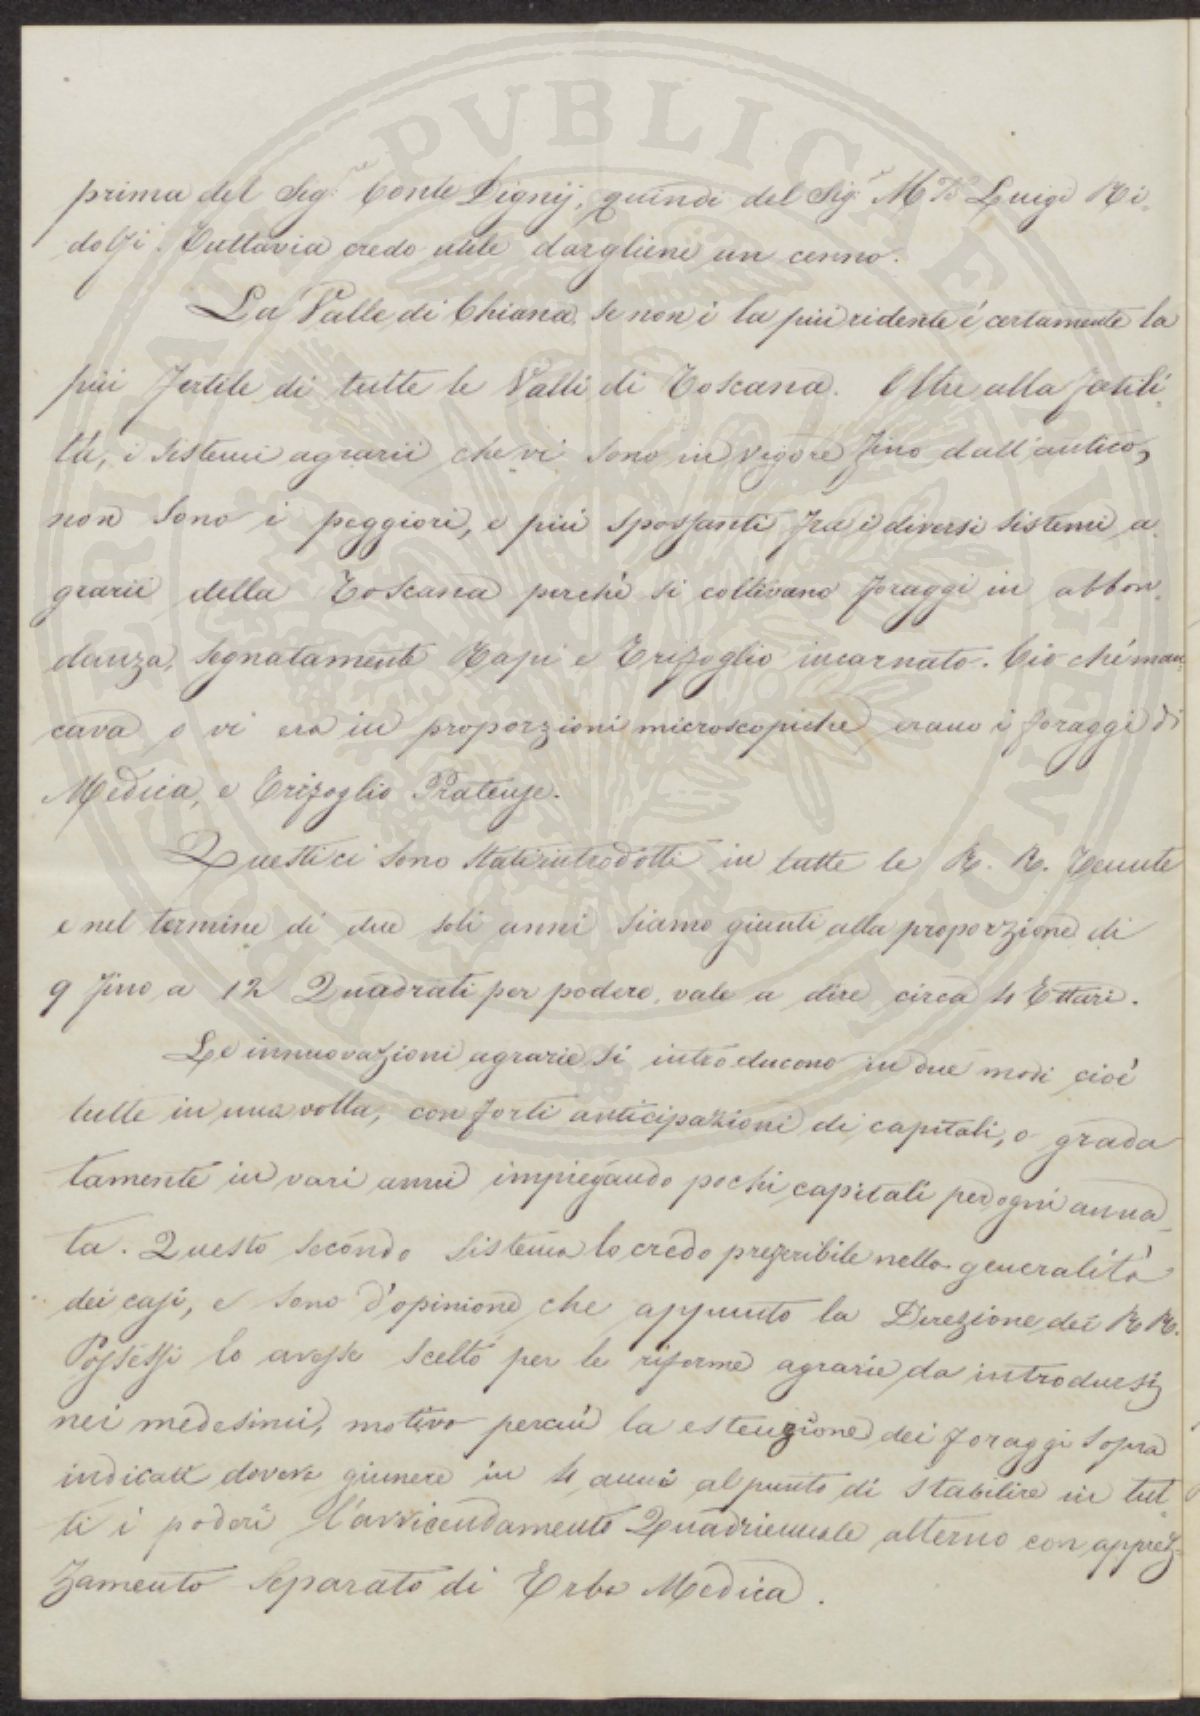 prima del Sig.r Conte Digny, quindi del Sig.r M.se Luigi Ri-
dolfi. Tuttavia credo utile dargliene un cenno.
La Valle di Chiana se non è la più ridente è certamente la
più fertile di tutte le Valli di Toscana. Oltre alla fertili-
tà, i sistemi agrarii che vi sono in vigore fino dall'antico,
non sono i peggiori, e più spossanti fra i diversi sistemi a-
grarii della Toscana perchè si coltivano foraggi in abbon-
danza, segnatamente Rapi e Trifoglio incarnato. Ciò chè man-
cava o vi era in proporzioni microscopiche erano i foraggi di
Medica, e Trifoglio Pratense.
Questi ci sono stati introdotti in tutte le R. R. Tenute
e nel termine di due soli anni siamo giunti alla proporzione di
9 fino a 12 Quadrati per podere, vale a dire circa 4 Ettari.
Le innuovazioni agrarie si introducono in due modi cioè
tutte in una volta, con forti anticipazioni di capitali, o grada
tamente in vari anni impiegando pochi capitali per ogni anna-
ta. Questo secondo sistema lo credo preferibile nella generalità
dei casi, e sono d'opinione che appunto la Direzione dei R R.
Possessi lo avesse scelto per le riforme agrarie da introdursi
nei medesimi, motivo percui la estenzione dei foraggi sopra
indicati doveva giunere in 4 anni al punto di stabilire in tut-
ti i poderi l'avvicendamento Quadriennale alterno con apprez-
zamento separato di Erba Medica.
PUBLICAE